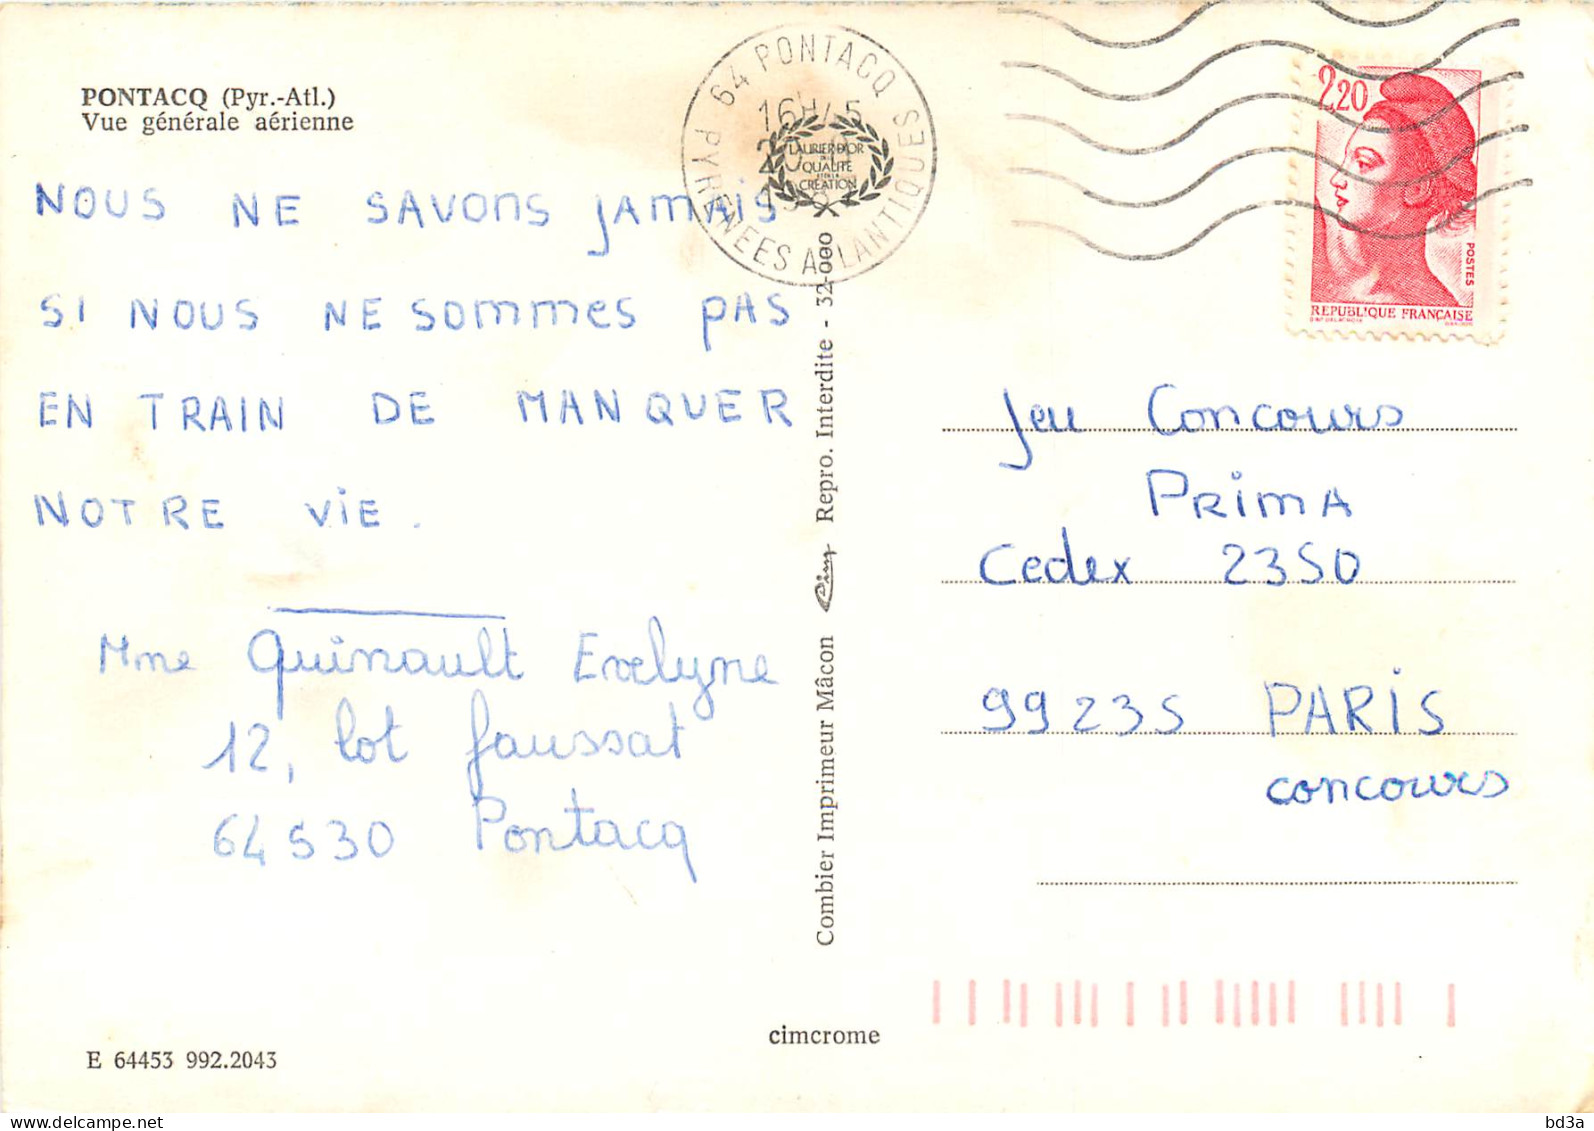 PONTACQ (Pyr.-Atl.)
Vue générale aérienne
NOUS NE SAVONS JAMAIS
SI NOUS NE SOMMES PAS
EN TRAIN DE MANQUER
NOTRE VIE.
Mme Quinault Evelyne
12, lot Faussat
64530 Pontacq
E 64453 992.2043
cimcrome
Combier Imprimeur Mâcon Cim Repro. Interdite - 32-000
64 PONTACQ
16H
20
PYRENEES ATLANTIQUES
LAURIER D'OR
QUALITÉ
CRÉATION
2,20
POSTES
REPUBLIQUE FRANÇAISE
Jeu Concours
PRIMA
Cedex 2350
99235 PARIS
concours
bd3a